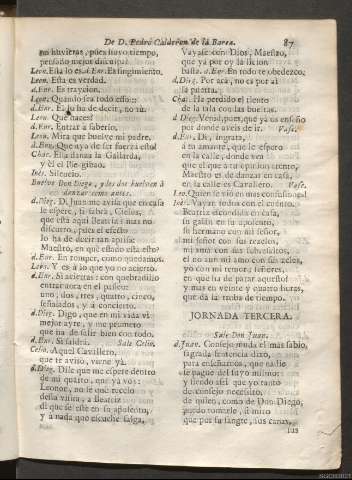 De D. Pedro Calderon de la Barca. 87
no huvieras, pues tuvo tiempo,
pensado mejor disculpa?
Leon. Esta lo es. d.Enr. Es fingimiento.
Leon. Esta es verdad.
d.Enr. Es traycion.
Leon. Quando sea todo esso:
d.Enr. Es ha de decir, no sù.
Leon. Què haces?
d.Enr. Entrar a saberlo.
Leon. Mira que buelve mi padre.
d.Enr. Que aya de ser fuerza esto!
Chac. Ella danza la Gallarda,
y èl el Pie-gibao.
Inès. Silencio.
Buelve Don Diego, y los dos buelven à
danzar como antes.
d.Dieg. D. Juan me avisa que en casa
le espere, si sabrà, Cielos,
que està aqui Beatriz? mas no
discurro, pues el efecto
lo ha de decir tan apriesa:
Maestro, en què estado està esto?
d.Enr. En romper, como quedamos.
Leon. Y es à lo que yo no acierto.
d.Enr. Si acertàra: con quebradillo
entrar aora en el passeo:
uno, dos, tres, quatro, cinco,
señalados, y à concierto.
d.Dieg. Digo, que en mi vida vì
mejor ayre, y me prometo
que ha de salir bien con todo.
d.Enr. Si saldrà. Sale Celio.
Celio. Aquel Cavallero,
que te avisè, verte yà.
d.Dieg. Dile que me espere dentro
de mi quarto, que yà voy:
Leonor, no sè què recelo
desta visita, à Beatriz
dì que se estè en su aposento,
y à nada que escuche salga,
Vayase con Dios, Maestro,
que yà por oy la licion
basta. d.Enr. En todo te obedezco.
d.Dieg. Por acà, no es por aì
la puerta.
Cha. Ha perdido el tiento
de la sala con las bueltas.
d.Dieg. Venid, pues, que yà os enseño
por donde aveis de ir. Vase.
d.Enr. Di, ingrata,
à tu amante, que le espero
en la calle, donde vea
que el que à tu opinion atento,
Maestro es de danzar en casa,
en la calle es Cavallero. Vase.
Leo. Quien se viò en mas confusion!
Inès. Vayan todos con el cuento:
Beatriz escondida en casa,
su galàn en su aposento,
su hermano con mi señor,
mi señor con sus rezelos,
mi ama con sus sobresaltos,
el no aun mi amo con sus zelos,
yo con mi temor; señores,
en què ha de parar aquesto?
y mas en veinte y quatro horas,
que dà la trova de tiempo.
JORNADA TERCERA.
Sale Don Juan.
d.Juan. Consejo pida el mas sabio,
sagrada sentencia dixo,
para enseñarnos, que nadie
se pague del suyo mismo:
y siendo assi que yo tanto
de consejo necessito,
de quien, como de Don Diego,
puedo tomarle, si miro
que por su sangre, sus canas,
sus